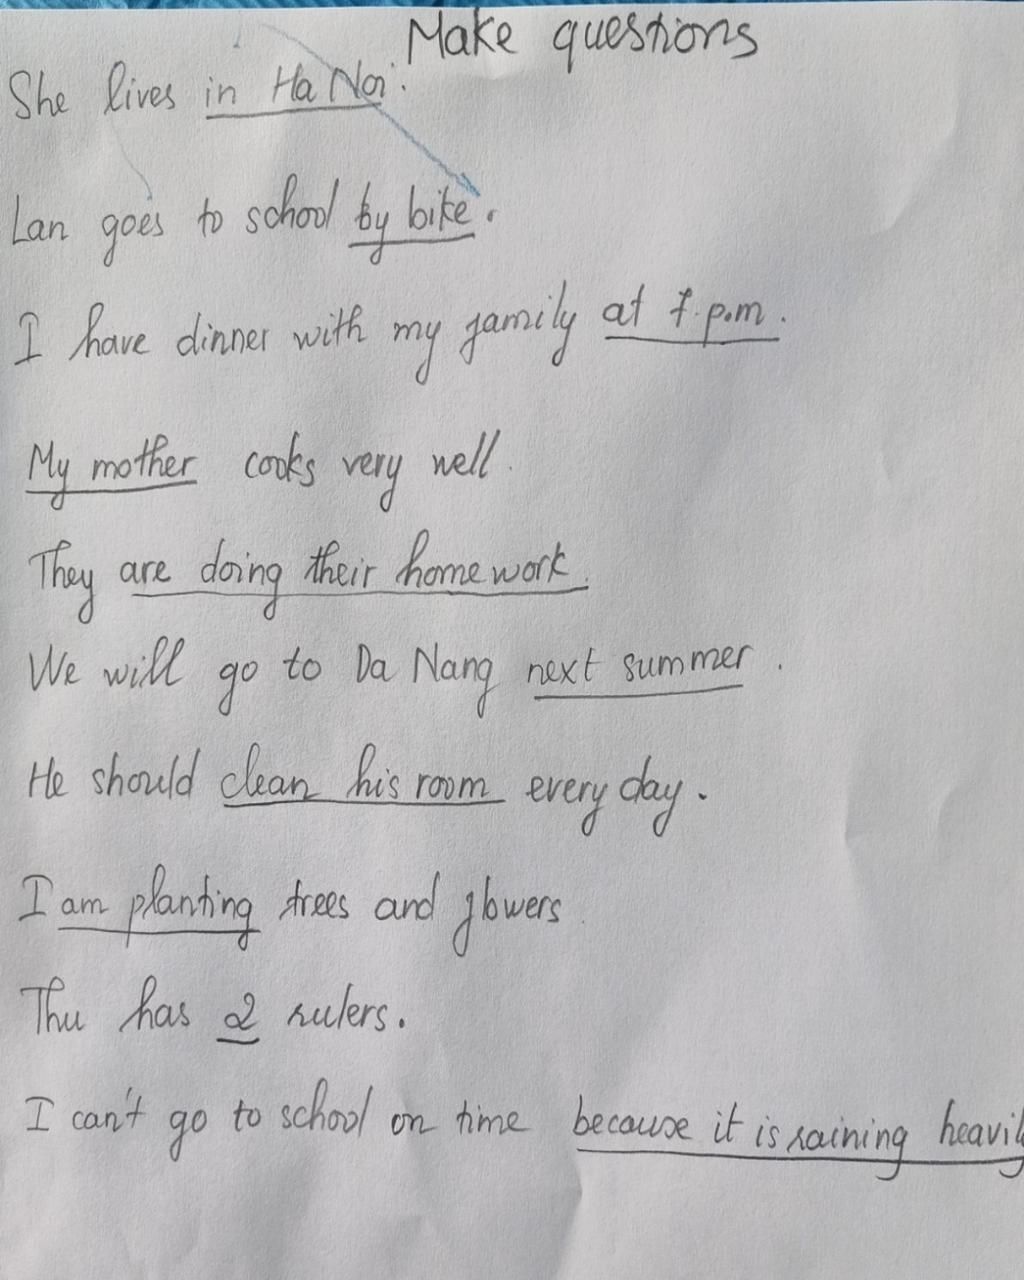 Make questions
She lives in Ha Noi.
Lan goes to school by bike.
I have dinner with my family at 7 p.m.
My mother cooks very well.
They are doing their homework.
We will go to Da Nang next summer.
He should clean his room every day.
I am planting trees and flowers
Thu has 2 rulers.
I can't go to school on time because it is raining heavily